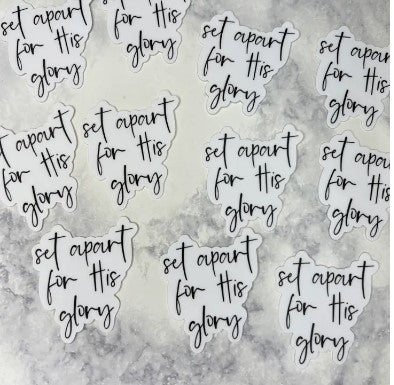 set apart
for His
glory
for His
glory
set apart
for His
glory
set apart
for His
glory
apart
for His
glory
set apart
for His
glory
set apart
for His
glory
set apart
for His
glory
set apart
for His
glory
set apart
for His
glory
set apart
for His
glory